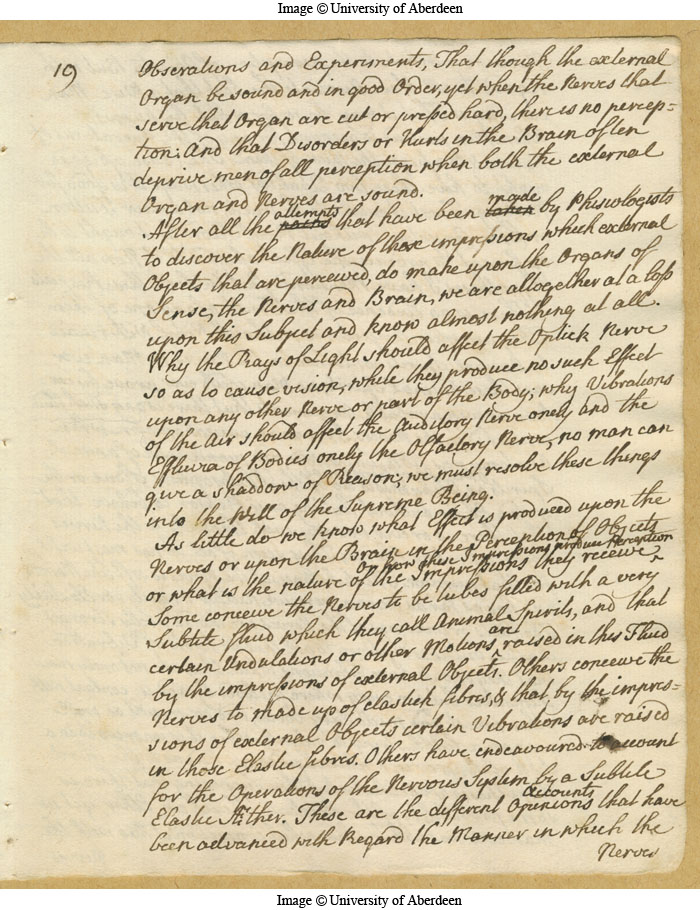 Image © University of Aberdeen
19
Observations and Experiments, That though the external
Organ be sound and in good Order, yet when the Nerves that
serve that Organ are cut or pressed hard, there is no percep-
tion: And that Disorders or Hurts in the Brain often
deprive men of all perception when both the external
Organ and Nerves are sound.
attempts made
After all the that have been taken by Phisiologists
to discover the Nature of those impressions which external
Objects that are perceived, do make upon the Organs of
Sense, the Nerves and Brain, we are alltogether at a loss
upon this Subject and know almost nothing at all.
Why the Rays of Light should affect the Optick Nerve
so as to cause vision, while they produce no such Effect
upon any other Nerve or part of the Body; why Vibrations
of the Air should affect the Auditory Nerve onely and the
Effluvia of Bodies onely the Olfactory Nerve, no man can
give a shaddow of Reason; we must resolve these things
into the Will of the Supreme Being.
As little do we know what Effect is produced upon the
Nerves or upon the Brain in the Perception of Objects
Or how these Impressions produce Perception
or what is the nature of the Impressions they receive ^
Some conceive the Nerves to be tubes filled with a very
Subtile fluid which they call Animal Spirits, and that
are
certain Undulations or other Motions ^ raised in this Fluid
by the impressions of external Objects. Others conceive the
Nerves to made up of elastick fibres, & that by the impres-
sions of external Objects certain Vibrations are raised
in those Elastic fibres. Others have endeavoured to account
for the Operations of the Nervous System by a Subtile
accounts
Elastic Æther. These are the different Opinions that have
been advanced with Regard the Manner in which the
Nerves
Image © University of Aberdeen